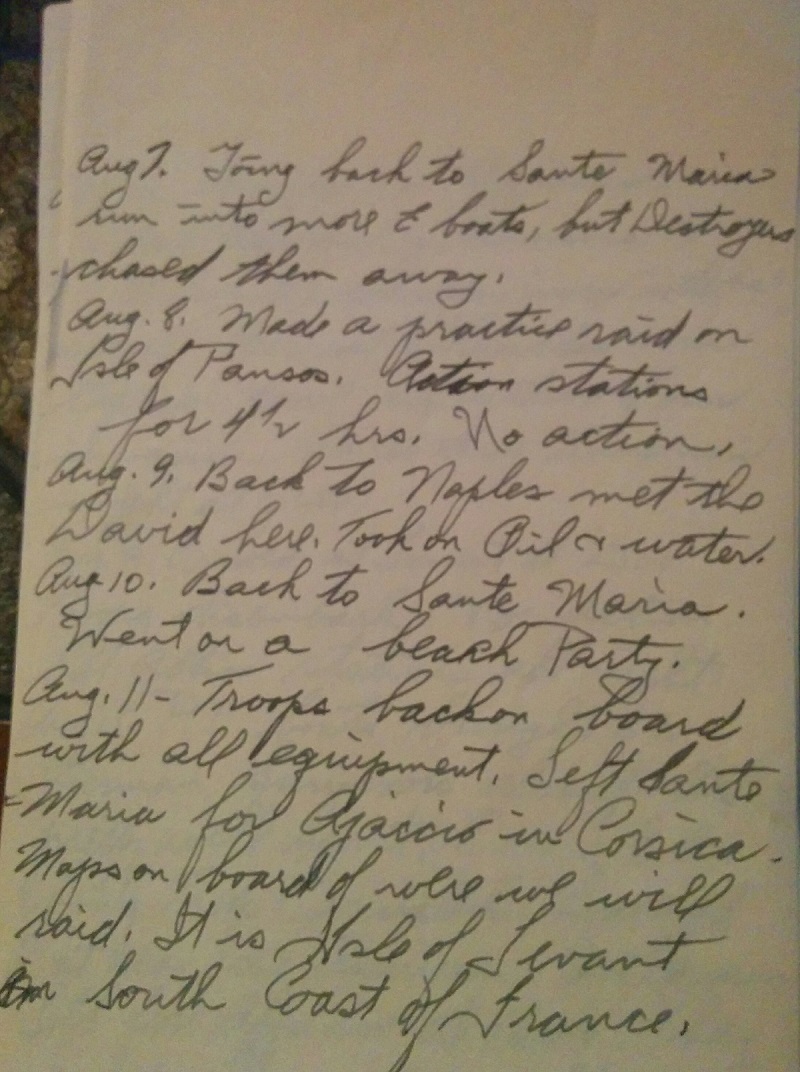 Aug 7. Going back to Sante Maria
run into more E boats, but Destroyers
chased them away.
Aug. 8. Made a practice raid on
Isle of Pansos. Action stations
for 4 1/2 hrs. No action.
Aug. 9. Back to Naples met the
David here. Took on Oil & water.
Aug 10. Back to Sante Maria.
Went on a beach Party.
Aug. 11 - Troops back on board
with all equipment. Left Sante
Maria for Ajaccio in Corsica.
Maps on board of were we will
raid. It is Isle of Levant
in South Coast of France.